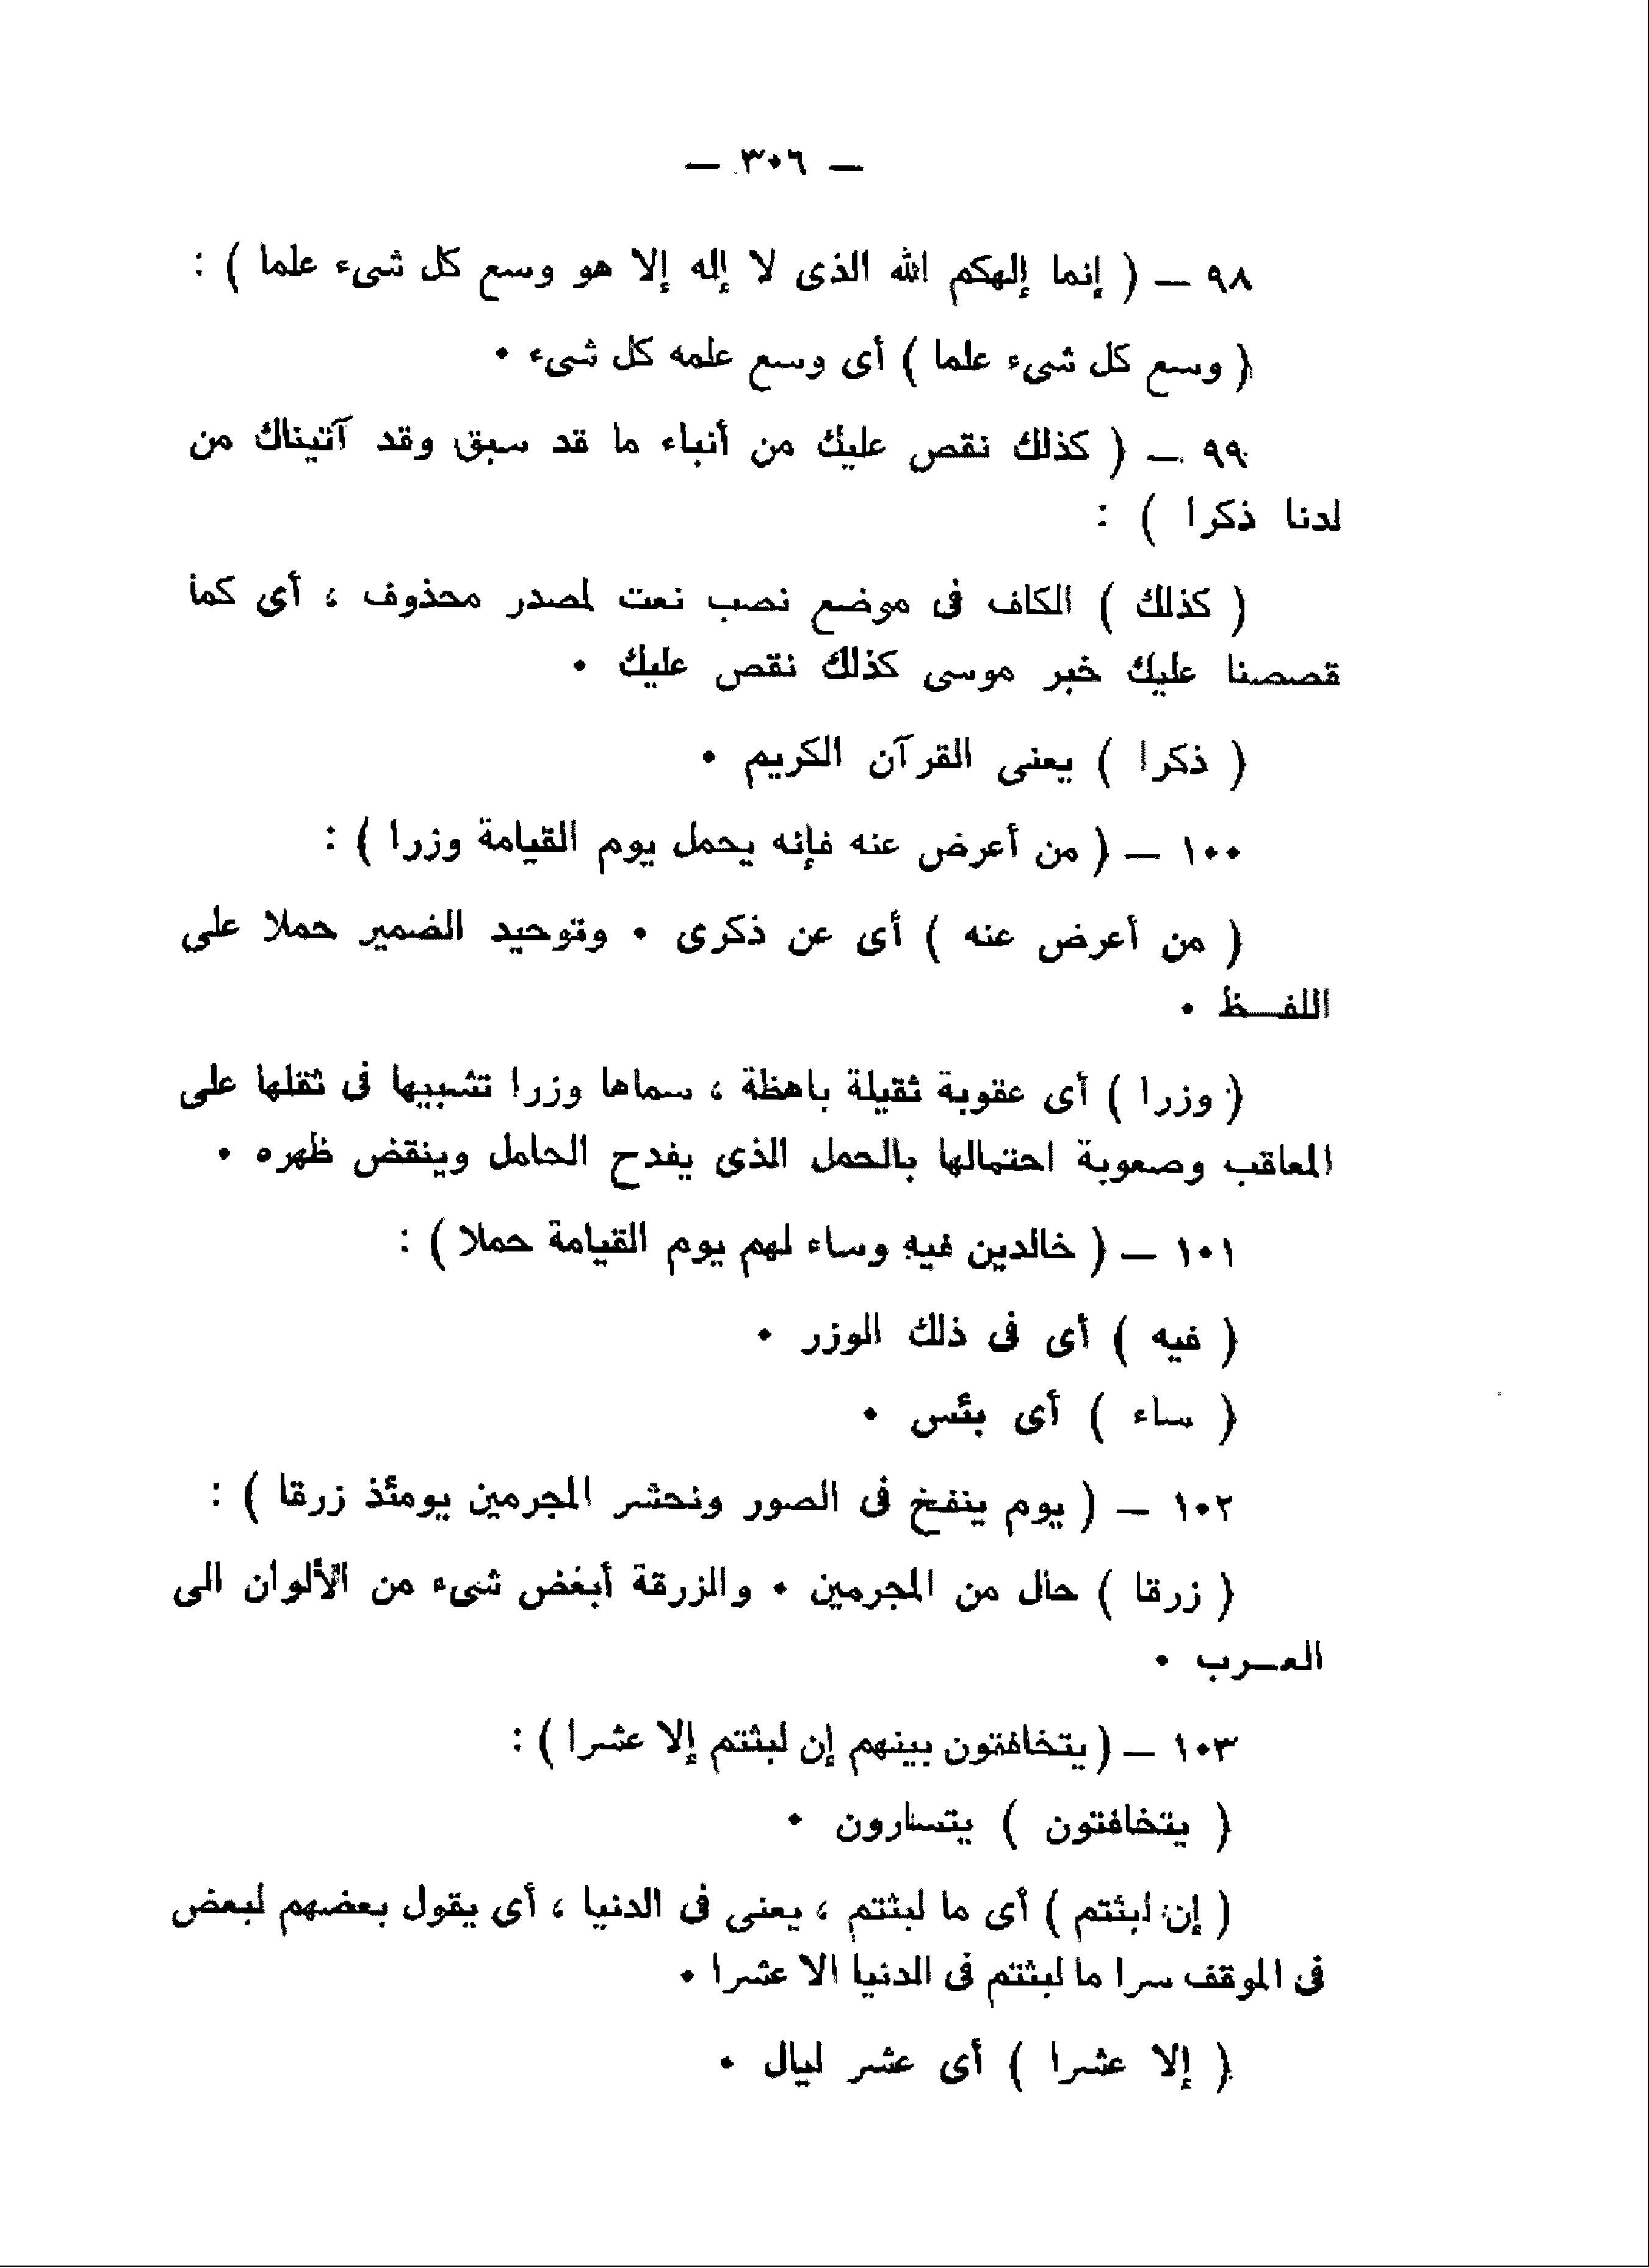 — ٣٠٦ —
٩٨ — ( إنما إلهكم الله الذى لا إله إلا هو وسع كل شىء علما ) :
( وسع كل شىء علما ) أى وسع علمه كل شىء ٠
٩٩ — ( كذلك نقص عليك من أنباء ما قد سبق وقد آتيناك من
لدنا ذكرا ) :
( كذلك ) الكاف فى موضع نصب نعت لمصدر محذوف ، أى كما
قصصنا عليك خبر موسى كذلك نقص عليك ٠
( ذكرا ) يعنى القرآن الكريم ٠
١٠٠ — ( من أعرض عنه فإنه يحمل يوم القيامة وزرا ) :
( من أعرض عنه ) أى عن ذكرى ٠ وتوحيد الضمير حملا على
اللفــظ ٠
( وزرا ) أى عقوبة ثقيلة باهظة ، سماها وزرا تشبيها فى ثقلها على
المعاقب وصعوبة احتمالها بالحمل الذى يفدح الحامل وينقض ظهره ٠
١٠١ — ( خالدين فيه وساء لهم يوم القيامة حملا ) :
( فيه ) أى فى ذلك الوزر ٠
( ساء ) أى بئس ٠
١٠٢ — ( يوم ينفخ فى الصور ونحشر المجرمين يومئذ زرقا ) :
( زرقا ) حال من المجرمين ٠ والزرقة أبغض شىء من الألوان الى
العــرب ٠
١٠٣ — ( يتخافتون بينهم إن لبثتم إلا عشرا ) :
( يتخافتون ) يتسارون ٠
( إن لبثتم ) أى ما لبثتم ، يعنى فى الدنيا ، أى يقول بعضهم لبعض
فى الموقف سرا ما لبثتم فى الدنيا الا عشرا ٠
( إلا عشرا ) أى عشر ليال ٠